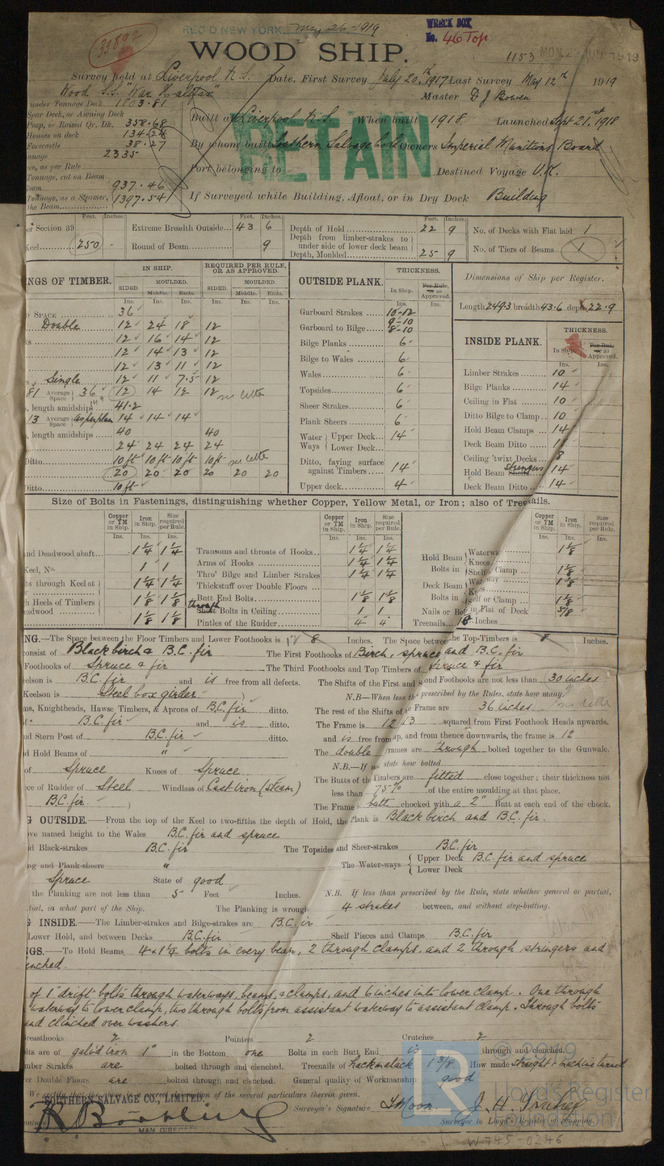 REC'D NEW YORK May 26-1919
WRECK BOX
No. 46 Top
WOOD SHIP.
1153
Survey held at Liverpool N.S. Date, First Survey July 20th 1917 Last Survey May 12th 1919
Wood S.S. "War Halifax" Master
under Tonnage Deck 1803.81
Spar Deck, or Awning Deck
Poop, or Round Qr. Dk. 358.68
Houses on deck 134.24
Forecastle 38.27
2335
937.46
Tonnage, as a Steamer, 1397.54
the Beam
Built at Liverpool N.S. When built 1918 Launched Sept 21st 1918
By whom built Southern Salvage Co Ld Owners Imperial Munitions Board
RETAIN
Port belonging to Destined Voyage U.K.
If Surveyed while Building, Afloat, or in Dry Dock Building
Feet. Inches.
Section 39
Keel 250
Extreme Breadth Outside 43 6
Round of Beam 9
Depth of Hold 22 9
Depth from limber-strakes to under side of lower deck beam
Depth, Moulded 25 9
No. of Decks with Flat laid 1
No. of Tiers of Beams 1
Dimensions of Ship per Register.
Length 249.3 breadth 43.6 depth 22.9
NGS OF TIMBER.
IN SHIP.
REQUIRED PER RULE, OR AS APPROVED.
SIDED. MOULDED. SIDED. MOULDED.
Middle. Ends. Middle. Ends.
SPACE 36
Double 12 24 18 12
12 16 14 12
12 14 13 12
12 13 11 12
Single 12 11 7.5 12
81 Average Space 36 12 14 12 12
length amidships 41.2
13 Average Space as per plan 14 14 14
length amidships 40 40
24 24 24 24
Ditto 10ft 10ft 10ft 10ft
20 20 20 20 20 20
Ditto 10ft
OUTSIDE PLANK.
THICKNESS.
In Ship. Per Rule or as Approved.
Garboard Strakes 10-12
Garboard to Bilge 9-10 8-10
Bilge Planks 6
Bilge to Wales 6
Wales 6
Topsides 6
Sheer Strakes 6
Plank Sheers 6
Water Ways Upper Deck 14
Lower Deck
Ditto, faying surface against Timbers 14
Upper deck 4
INSIDE PLANK.
THICKNESS.
Limber Strakes 10
Bilge Planks 14
Ceiling in Flat 10
Ditto Bilge to Clamp 10
Hold Beam Clamps 14
Deck Beam Ditto
Ceiling 'twixt Decks 8
Hold Beam Stringers 14
Deck Beam Ditto 14
Size of Bolts in Fastenings, distinguishing whether Copper, Yellow Metal, or Iron; also of Treenails.
Copper or YM in Ship. Iron in Ship. Size required per Rule.
and Deadwood, abaft 1¼ 1¼
Keel, No. 1 1
ts through Keel at 1¼ 1¼
h Heels of Timbers 1⅛ 1⅛
dwood 1⅛ 1⅛
Transoms and throats of Hooks 1¼ 1¼
Arms of Hooks 1¼ 1¼
Thro' Bilge and Limber Strakes 1¼ 1¼
Thickstuff over Double Floors
Butt End Bolts 1⅛ 1⅛
through Bolts in Ceiling 1 1
Pintles of the Rudder 4 4
Hold Beam Bolts in Waterway 1⅛
Knees
Shelf or Clamp 1⅛
Deck Beam Bolts in Waterway 1⅛
Knees
Shelf or Clamp 1⅛
Nails or Bolts in Flat of Deck 5/8
Treenails Inches
NG.—The Space between the Floor Timbers and Lower Foothooks is 8 Inches. The Space between the Top-Timbers is 8 Inches.
onsist of Black birch & B.C. fir The First Foothooks of Birch, spruce and B.C. fir
Foothooks of Spruce & fir The Third Foothooks and Top Timbers of Spruce & fir
elson is B.C. fir and is free from all defects. The Shifts of the First and Second Foothooks are not less than 30 inches
Keelson is Steel box girder N.B.—When less than prescribed by the Rules, state how many.
ns, Knightheads, Hawse Timbers, & Aprons of B.C. fir ditto. The rest of the Shifts of Frame are 36 inches
B.C. fir and is ditto. The Frame is 12 13 squared from First Foothook Heads upwards,
nd Stern Post of B.C. fir ditto. and is free from sap, and from thence downwards, the frame is 12
d Hold Beams of " " The double frames are through bolted together to the Gunwale.
N.B.—If state how bolted
of Spruce Knees of Spruce The Butts of the Timbers are fitted close together; their thickness not
ce of Rudder of Steel Windlass of Cast iron (steam) less than 75% of the entire moulding at that place.
B.C. fir The Frame butt chocked with a 2" Butt at each end of the chock.
G OUTSIDE.—From the top of the Keel to two-fifths the depth of Hold, the Plank is Black birch and B.C. fir.
ve named height to the Wales B.C. fir and spruce
d Black-strakes B.C. fir The Topsides and Sheer-strakes B.C. fir
ng and Plank-sheers " The Water-ways Upper Deck B.C. fir and spruce
Lower Deck
Spruce State of good
the Planking are not less than 5 Feet Inches. N.B. If less than prescribed by the Rule, state whether general or partial,
tial, in what part of the Ship. The Planking is wrought 4 strakes between, and without step-butting.
G INSIDE.—The Limber-strakes and Bilge-strakes are B.C. fir
Lower Hold, and between Decks B.C. fir Shelf Pieces and Clamps B.C. fir
NGS.—To Hold Beams, 4-1⅛ bolts in every beam, 2 through clamps, and 2 through stringers and
enched.
of 1" drift bolts through waterways, beams, & clamps, and 6 inches into lower clamp. One through
waterway to lower clamp, two through bolts from assistant waterway to assistant clamp. Through bolts
and clinched over washers.
reasthooks 2 Pointers 2 Crutches 2
lts are of galv'd iron 1" in the Bottom one Bolts in each Butt End is through and clenched.
mber Strakes are bolted through and clenched. Treenails of hackmatack 1 3/8 How made straight
r Double Floors are bolted through and clenched. General quality of Workmanship good
of the several particulars therein given.
SOUTHERN SALVAGE CO., LIMITED.
MAN. DIRECTOR.
Surveyor's Signature
Surveyor to Lloyd's Register of Shipping.
© 2019
Lloyd's Register
Foundation
W745-0246